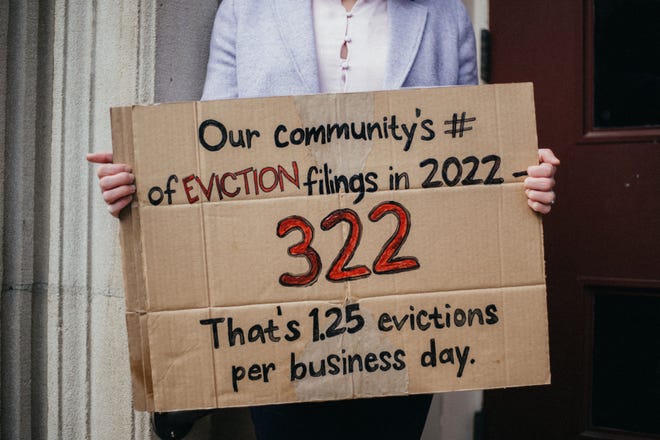 Our community's #
of EVICTION filings in 2022 -
322
That's 1.25 evictions
per business day.